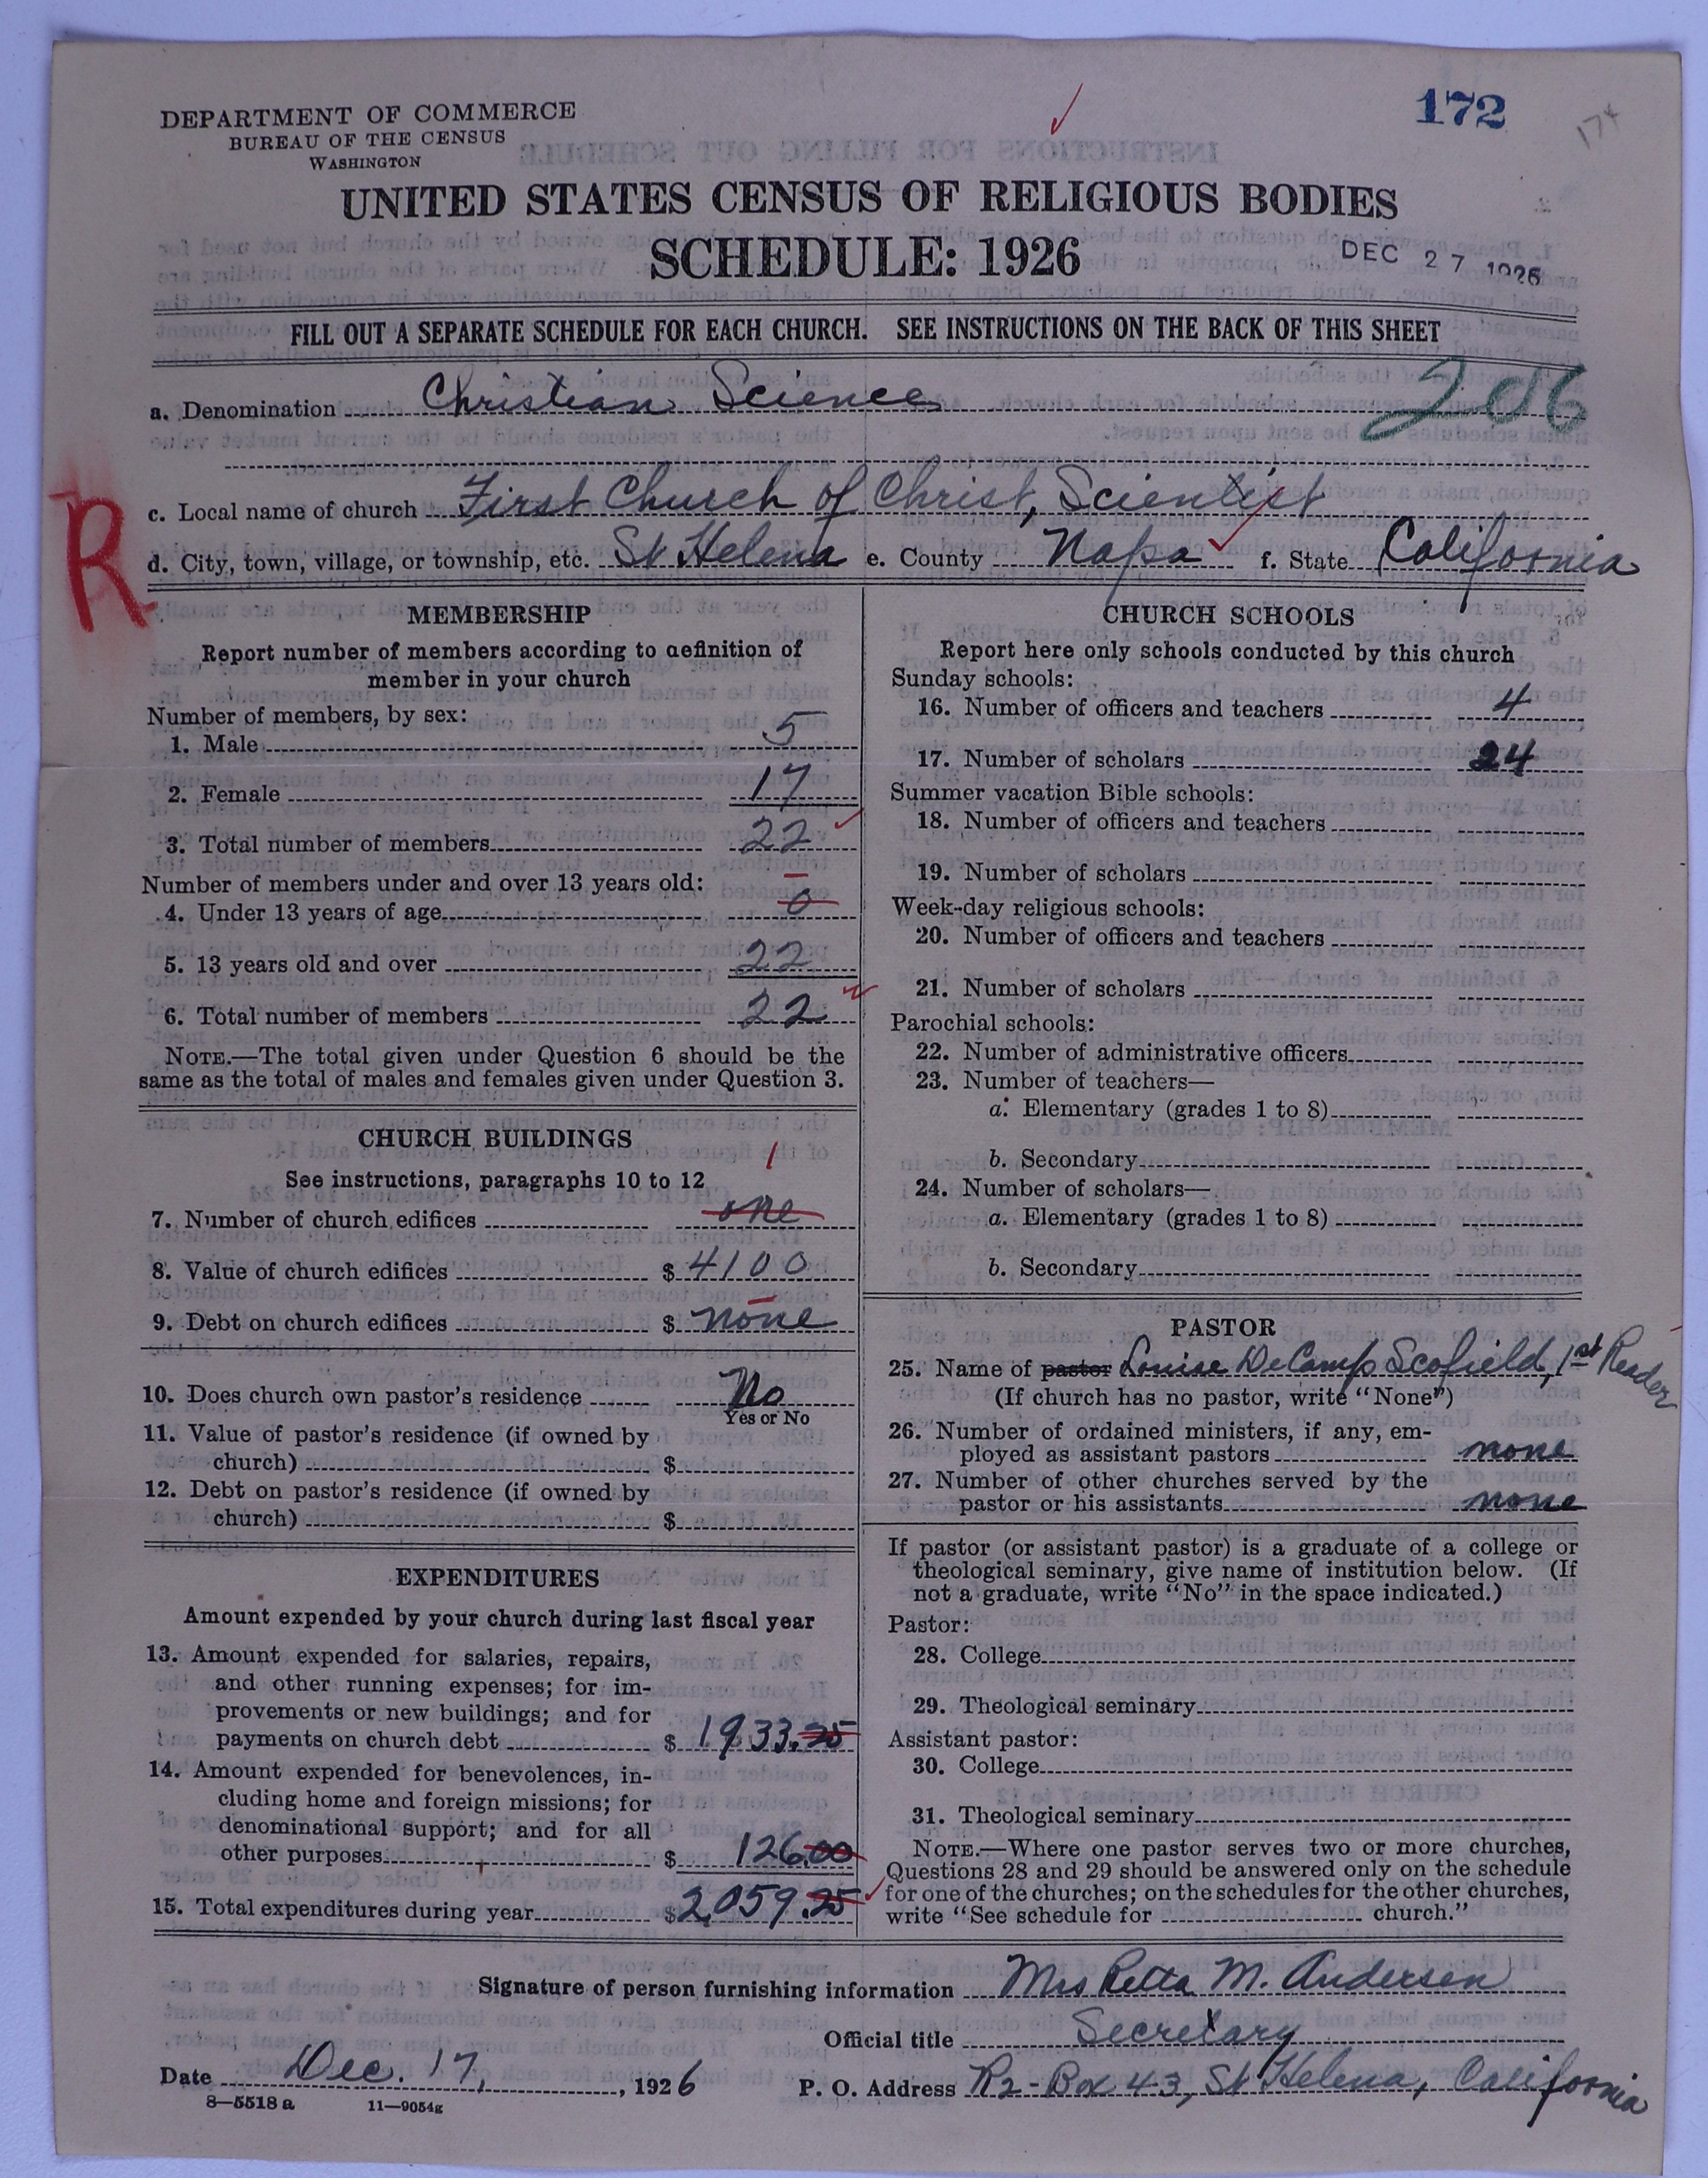 172
174
DEPARTMENT OF COMMERCE
BUREAU OF THE CENSUS
WASHINGTON
UNITED STATES CENSUS OF RELIGIOUS BODIES
SCHEDULE: 1926
DEC 27 1926
FILL OUT A SEPARATE SCHEDULE FOR EACH CHURCH. SEE INSTRUCTIONS ON THE BACK OF THIS SHEET
a. Denomination Christian Science
206
c. Local name of church First Church of Christ, Scientist
R
d. City, town, village, or township, etc. St Helena e. County Napa f. State California
MEMBERSHIP
Report number of members according to definition of
member in your church
Number of members, by sex:
1. Male 5
2. Female 17
3. Total number of members 22
Number of members under and over 13 years old:
4. Under 13 years of age 0
5. 13 years old and over 22
6. Total number of members 22
NOTE.—The total given under Question 6 should be the
same as the total of males and females given under Question 3.
CHURCH BUILDINGS
See instructions, paragraphs 10 to 12
1
7. Number of church edifices one
8. Value of church edifices $ 4100
9. Debt on church edifices $ none
10. Does church own pastor's residence No
Yes or No
11. Value of pastor's residence (if owned by
church) $
12. Debt on pastor's residence (if owned by
church) $
EXPENDITURES
Amount expended by your church during last fiscal year
13. Amount expended for salaries, repairs,
and other running expenses; for im-
provements or new buildings; and for
payments on church debt $ 1933.25
14. Amount expended for benevolences, in-
cluding home and foreign missions; for
denominational support; and for all
other purposes $ 126.00
15. Total expenditures during year $ 2,059.25
CHURCH SCHOOLS
Report here only schools conducted by this church
Sunday schools:
16. Number of officers and teachers 4
17. Number of scholars 24
Summer vacation Bible schools:
18. Number of officers and teachers
19. Number of scholars
Week-day religious schools:
20. Number of officers and teachers
21. Number of scholars
Parochial schools:
22. Number of administrative officers
23. Number of teachers—
a. Elementary (grades 1 to 8)
b. Secondary
24. Number of scholars—
a. Elementary (grades 1 to 8)
b. Secondary
PASTOR
25. Name of pastor Louise DeCamp Scofield, 1st Reader
(If church has no pastor, write "None")
26. Number of ordained ministers, if any, em-
ployed as assistant pastors none
27. Number of other churches served by the
pastor or his assistants none
If pastor (or assistant pastor) is a graduate of a college or
theological seminary, give name of institution below. (If
not a graduate, write "No" in the space indicated.)
Pastor:
28. College
29. Theological seminary
Assistant pastor:
30. College
31. Theological seminary
NOTE.—Where one pastor serves two or more churches,
Questions 28 and 29 should be answered only on the schedule
for one of the churches; on the schedules for the other churches,
write "See schedule for church."
Signature of person furnishing information Mrs Retta M. Andersen
Official title Secretary
Date Dec. 17, 1926 P. O. Address R2-Box 43, St Helena, California
8—5518 a 11—9054g